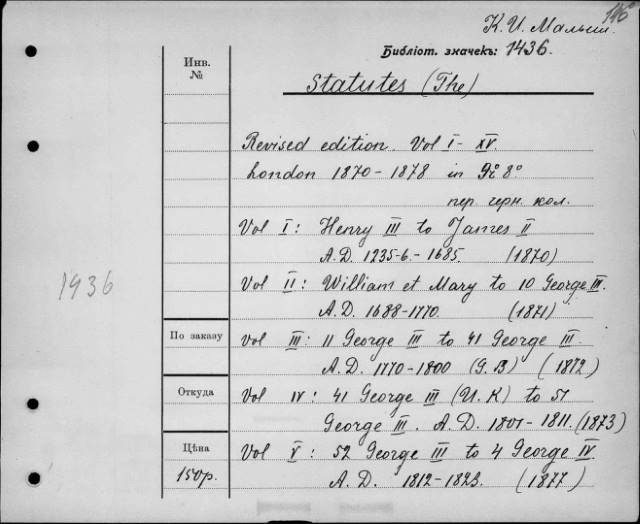 146
К. И. Малыш.
Библіот. значекъ: 1436.
Statutes (The)
Инв.
№
Revised edition. Vol I - XV.
London 1870 - 1878 in 8°
пер. черн. кол.
Vol I: Henry III to James II
A.D. 1235-6. - 1685. (1870)
1936
Vol II: William et Mary to 10 George III.
A.D. 1688-1770. (1871)
По заказу
Vol III: 11 George III to 41 George III.
A.D. 1770-1800 (G.B) (1872)
Откуда
Vol IV: 41 George III (U.K) to 51
George III. A.D. 1801-1811. (1873)
Цѣна
150р.
Vol V: 52 George III to 4 George IV.
A.D. 1812-1823. (1877)